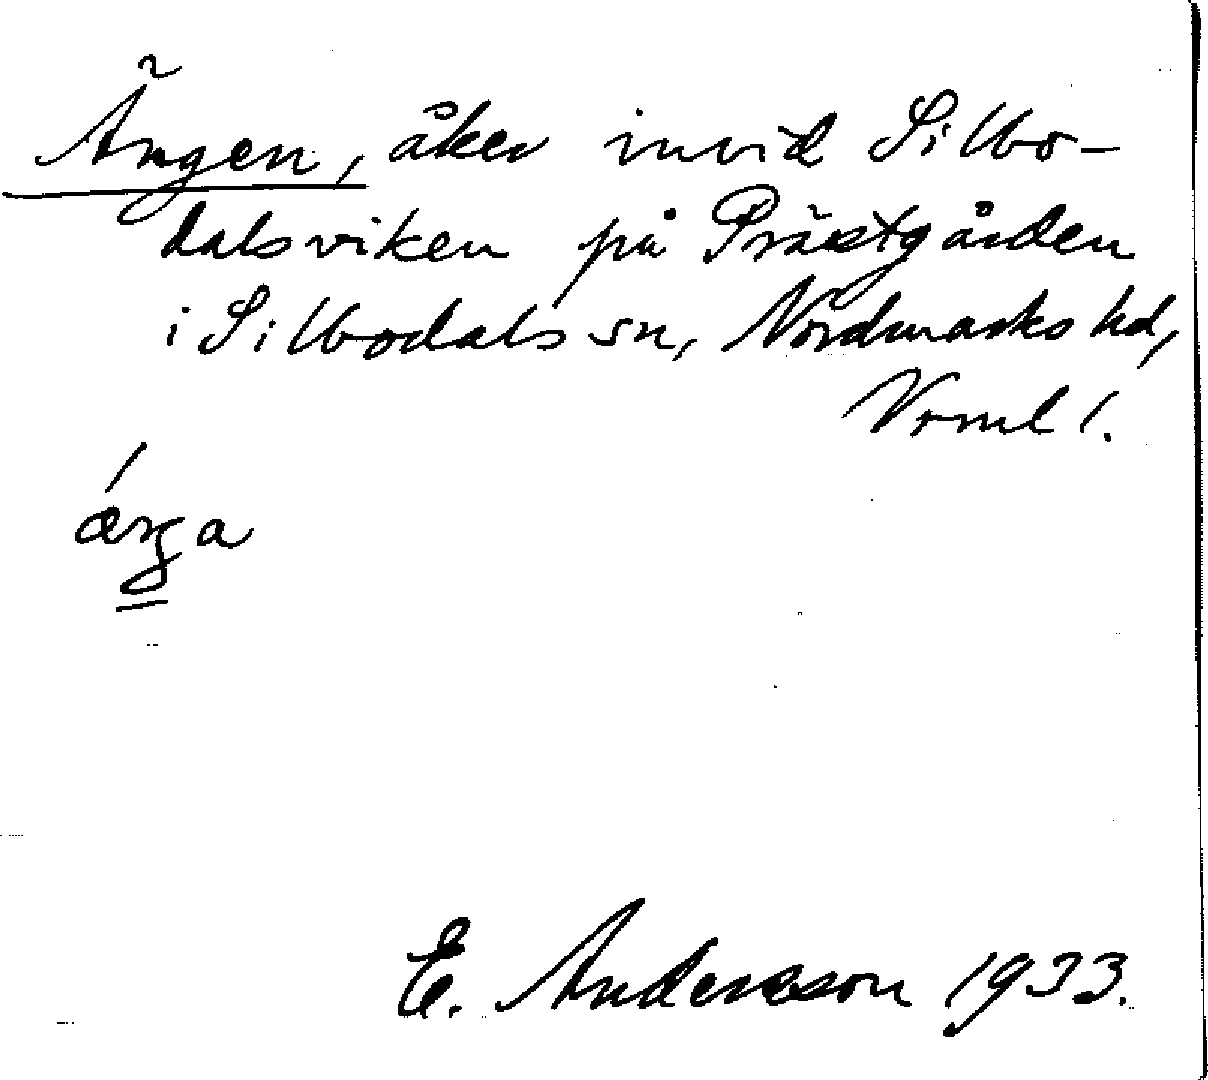 Ängen, åker invid Silbo-
dalsviken på Prästgården
i Silbodals sn, Nordmarks hd,
Vrml.
E. Andersson 1933.